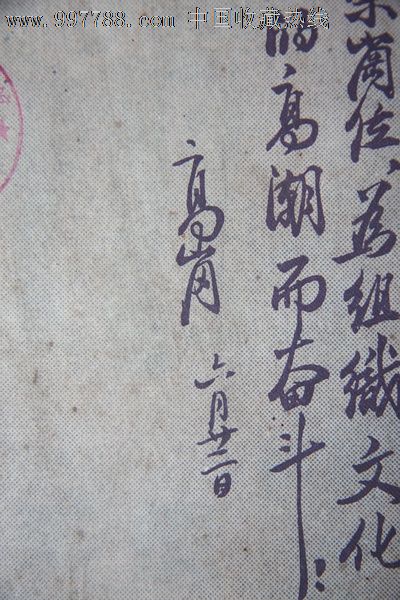 www.997788.com 中国收藏热线
崗位、为组織文化
的高潮而奋斗！
高崗
六月廿二日